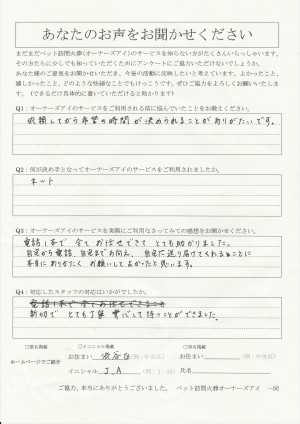 あなたのお声をお聞かせください
まだまだペット訪問火葬(オーナーズアイ)のサービスを知らない方がたくさんいらっしゃいます。
その方たちに少しでも知っていただくためにアンケートにご協力いただけないでしょうか。
あなた様のご意見をお聞かせいただき、今後の活動に反映したいと考えています。よかったこと、
嬉しかったこと、どのような些細なことでもけっこうです。ぜひご協力をよろしくお願いいたしま
す。(できるだけ具体的に書いていただけると助かります)
Q1:オーナーズアイのサービスをご利用される前に悩んでいたことをお教えください。
依頼してから希望の時間が決められることがありがたいです。
Q2:何が決め手となってオーナーズアイのサービスをご利用されましたか。
ネット
Q3:オーナーズアイのサービスを実際にご利用なさってみての感想をお聞かせください。
電話1本で 全てお任せできて とても助かりました。
自宅から電話、自宅までお向え、自宅に送り届けてくれることに
本当にありがたく お願いしてよかったと思います。
Q4:対応したスタッフの対応はいかがでしたか。
電話1本で全てお任せできること
親切で とても丁寧 安心して待つことができました。
□匿名掲載 □イニシャル掲載 □実名掲載
ホームページでご紹介
お住まい 渋谷区 (例:中央区) お住まい (例:中央区)
イニシャル J.A (例:J.H) 氏名
ご協力、本当にありがとうございました。 ペット訪問火葬オーナーズアイ 一同